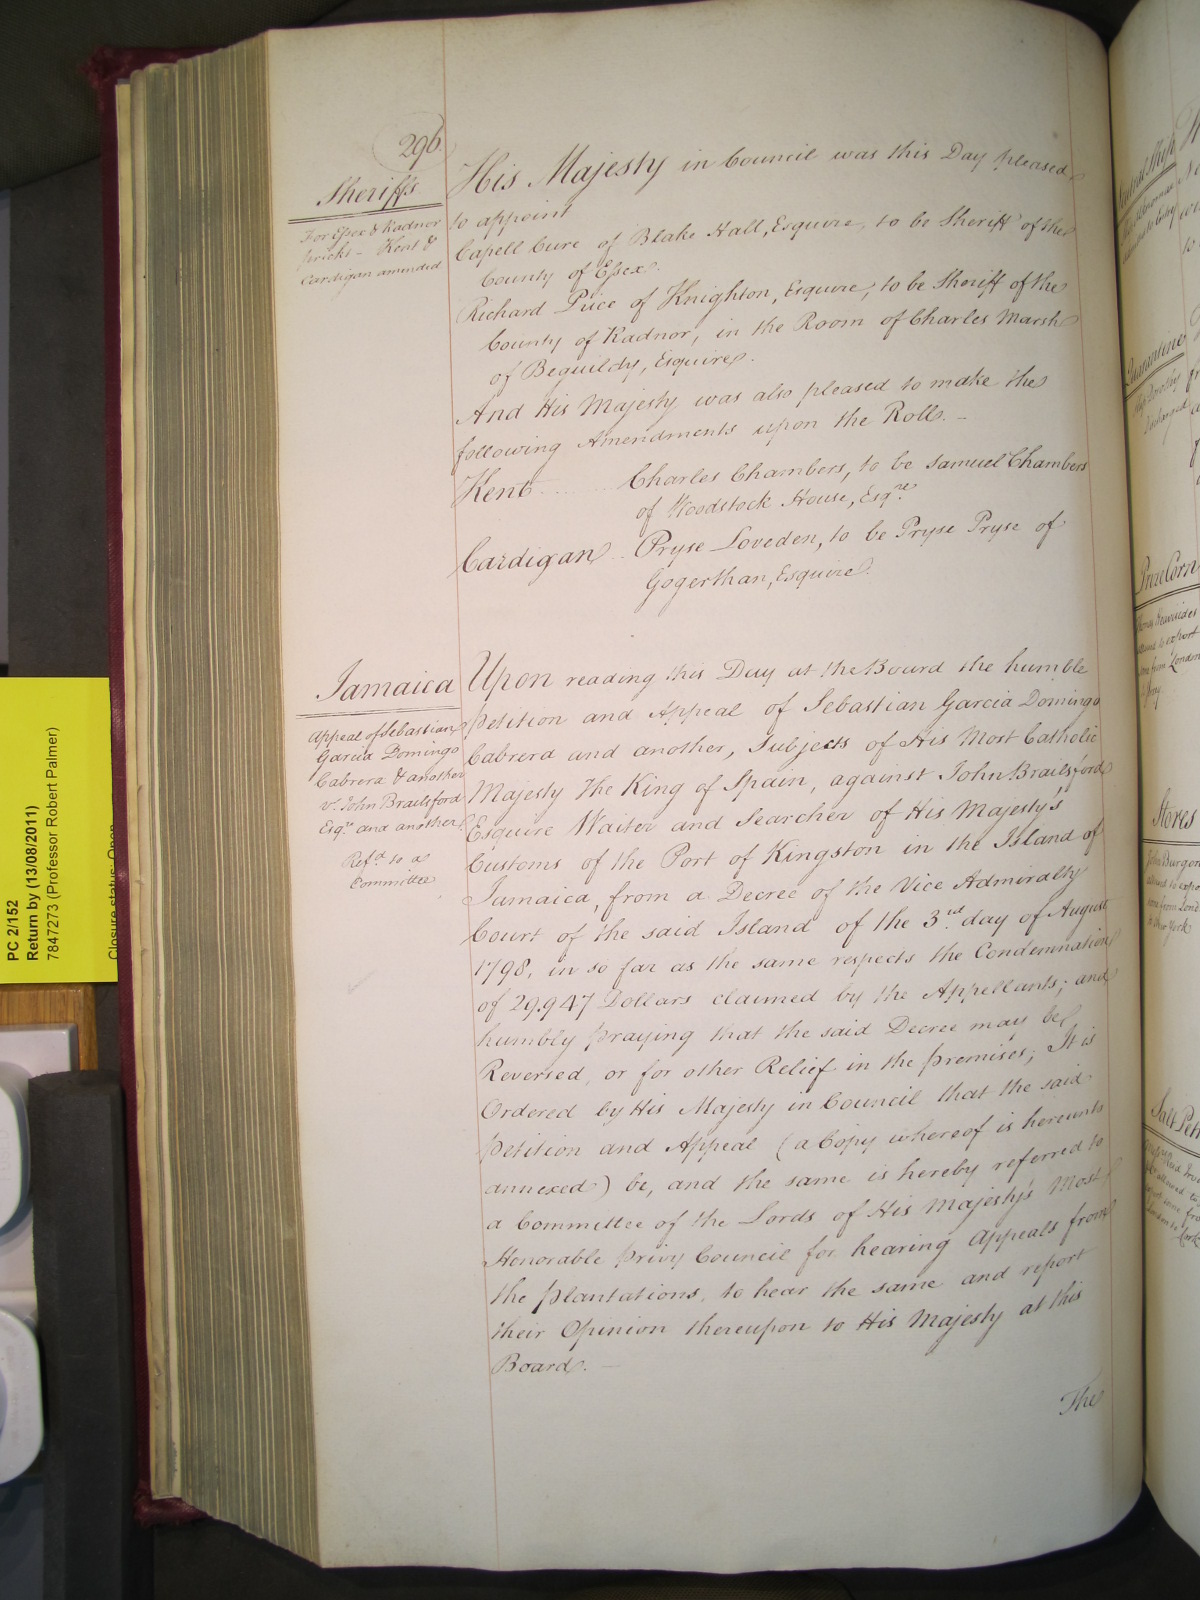 296
Sheriffs
For Essex & Radnor
prickt - Kent &
Cardigan amended
His Majesty in Council was this Day pleased
to appoint
Capell Cure of Blake Hall, Esquire, to be Sheriff of the
County of Essex.
Richard Price of Knighton, Esquire, to be Sheriff of the
County of Radnor, in the Room of Charles Marsh
of Beguildy, Esquire.
And His Majesty was also pleased to make the
following Amendments upon the Roll. -
Kent ...... Charles Chambers, to be Samuel Chambers
of Woodstock House, Esqre.
Cardigan .. Pryse Loveden, to be Pryse Pryse of
Gogerthan, Esquire.
Jamaica
Appeal of Sebastian
Garcia Domingo
Cabrera & another
v. John Brailsford
Esqre. and another
Refd. to a
Committee
Upon reading this Day at the Board the humble
Petition and Appeal of Sebastian Garcia Domingo
Cabrera and another, Subjects of His Most Catholic
Majesty the King of Spain, against John Brailsford
Esquire Waiter and Searcher of His Majesty's
Customs of the Port of Kingston in the Island of
Jamaica, from a Decree of the Vice Admiralty
Court of the said Island of the 3rd. day of August
1798, in so far as the same respects the Condemnation
of 29.947 Dollars claimed by the Appellants; and
humbly praying that the said Decree may be
Reversed, or for other Relief in the premises; It is
Ordered by His Majesty in Council that the said
Petition and Appeal (a Copy whereof is hereunto
annexed) be, and the same is hereby referred to
a Committee of the Lords of His Majesty's Most
Honorable Privy Council for hearing Appeals from
the Plantations, to hear the same and report
their Opinion thereupon to His Majesty at this
Board. -
The
PC 2/152
Return by (13/08/2011)
7847273 (Professor Robert Palmer)
Closure status: Open
Quarantine
Stores